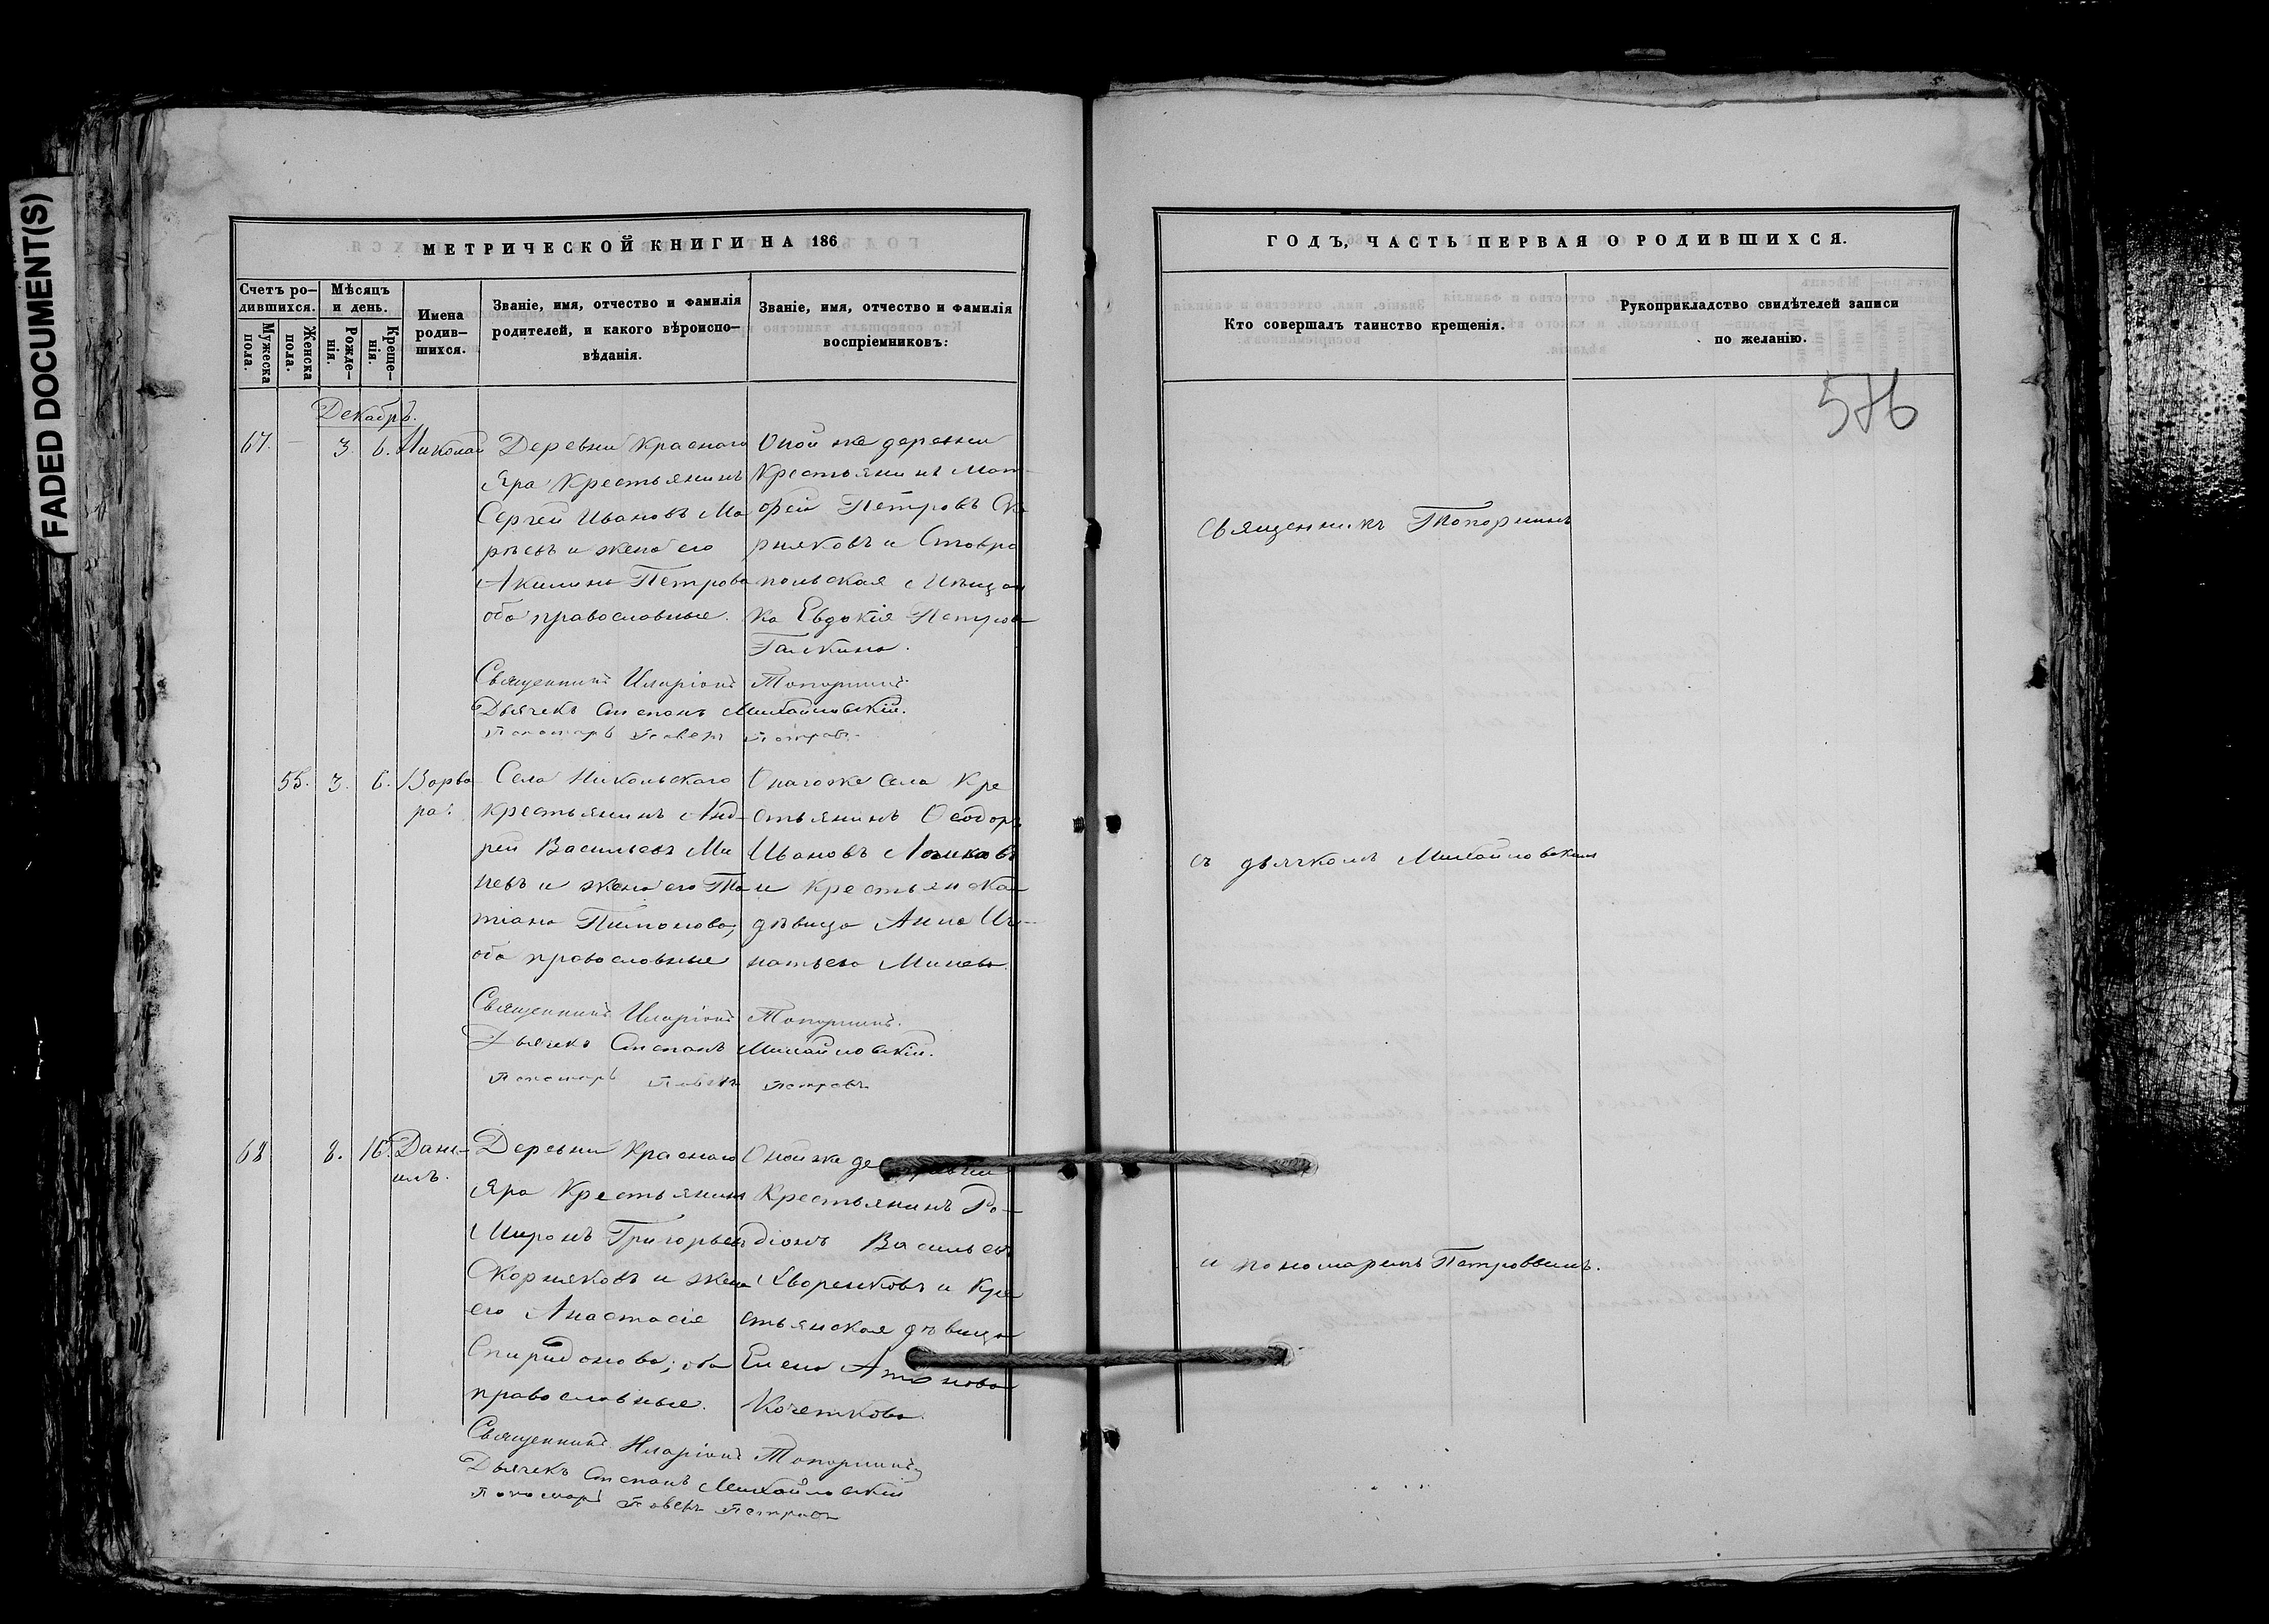 FADED DOCUMENT(S)
МЕТРИЧЕСКОЙ КНИГИ НА 186
Счетъ ро-
дившихся.
Мужеска
пола.
Женска
пола.
Мѣсяцъ
и день.
Рожде-
нія.
Креще-
нія.
Имена
родив-
шихся.
Званіе, имя, отчество и фамилія
родителей, и какого вѣроиспо-
вѣданія.
Званіе, имя, отчество и фамилія
воспріемниковъ:
Декабрь.
67. - 3. 6. Николай
Деревни Краснаго
Яра Крестьянинъ
Сергей Ивановъ Ма
рѣевъ и жена его
Акилина Петрова
оба православные.
Оной же деревни
Крестьянинъ Мат-
фей Петровъ Ско
рняковъ и Ставро
польская Мѣщан
ка Евдокія Петрова
Галкина.
Священникъ Иларіонъ Топорнинъ.
Дьячекъ Степанъ Михайловскій.
Пономарь Павелъ Петровъ.
55. 3. 6. Варва
ра.
Села Никольскаго
крестьянинъ Анд-
рей Васильевъ Ми
невъ и жена его Та
тіана Пимонова,
оба православные
Онаго же села Кре
стьянинъ Ѳеодоръ
Ивановъ
и крестьянская
дѣвица Анна Иг-
натьева Минева.
Священникъ Иларіонъ Топорнинъ.
Дьячекъ Степанъ Михайловскій.
Пономарь Павелъ Петровъ
68 8. 16. Дані-
илъ.
Деревни Краснаго
Яра Крестьянинъ
Миронъ Григорьевъ
Скорняковъ и жена
его Анастасія
Спиридонова; оба
православные.
Оной же деревни
Крестьянинъ Ро-
діонъ Васильевъ
Хворенковъ и Кре
стьянская дѣвица
Елена Антонова
Кочеткова.
Священникъ Иларіонъ Топорнинъ
Дьячекъ Степанъ Михайловскій
Пономарь Павелъ Петровъ
ГОДЪ, ЧАСТЬ ПЕРВАЯ О РОДИВШИХСЯ.
Кто совершалъ таинство крещенія.
Рукоприкладство свидѣтелей записи
по желанію.
576
Священникъ Топорнинъ
съ дьячкомъ Михайловскимъ
и пономаремъ Петровымъ.